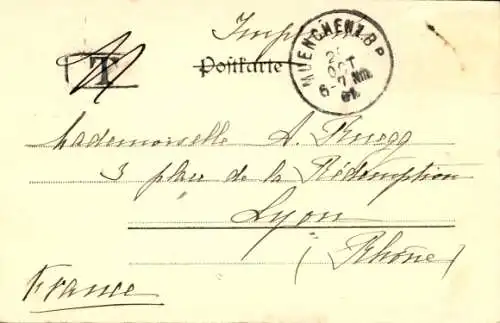 Imprimé
T
Postkarte
MUENCHEN 2 B.P
OCT
6-7 Nm
01
Mademoiselle A. Ruegg
3 place de la Rédemption
Lyon
(Rhône)
France